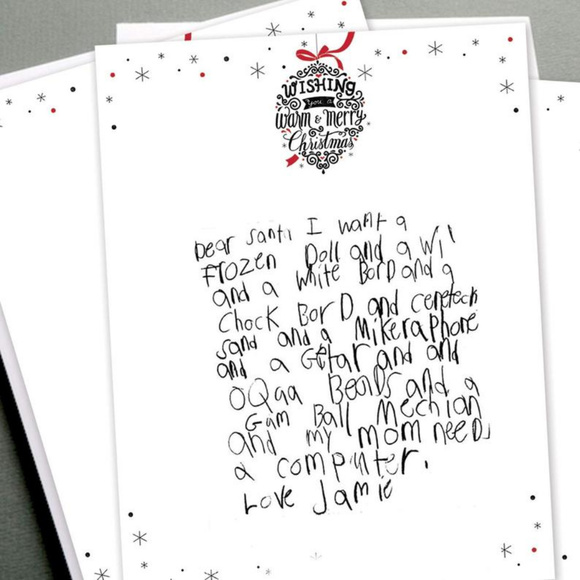 WISHING
you a
Warm & Merry
Christmas
Dear Santi I want a
Frozen Doll and a Wii
and a white BorD and a
Chock BorD and ceneteck
sand and a Mikeraphone
and a Getar and and
OQaa Beads and a
Gam Ball Mechian
and my mom need
a computer.
Love Jamie